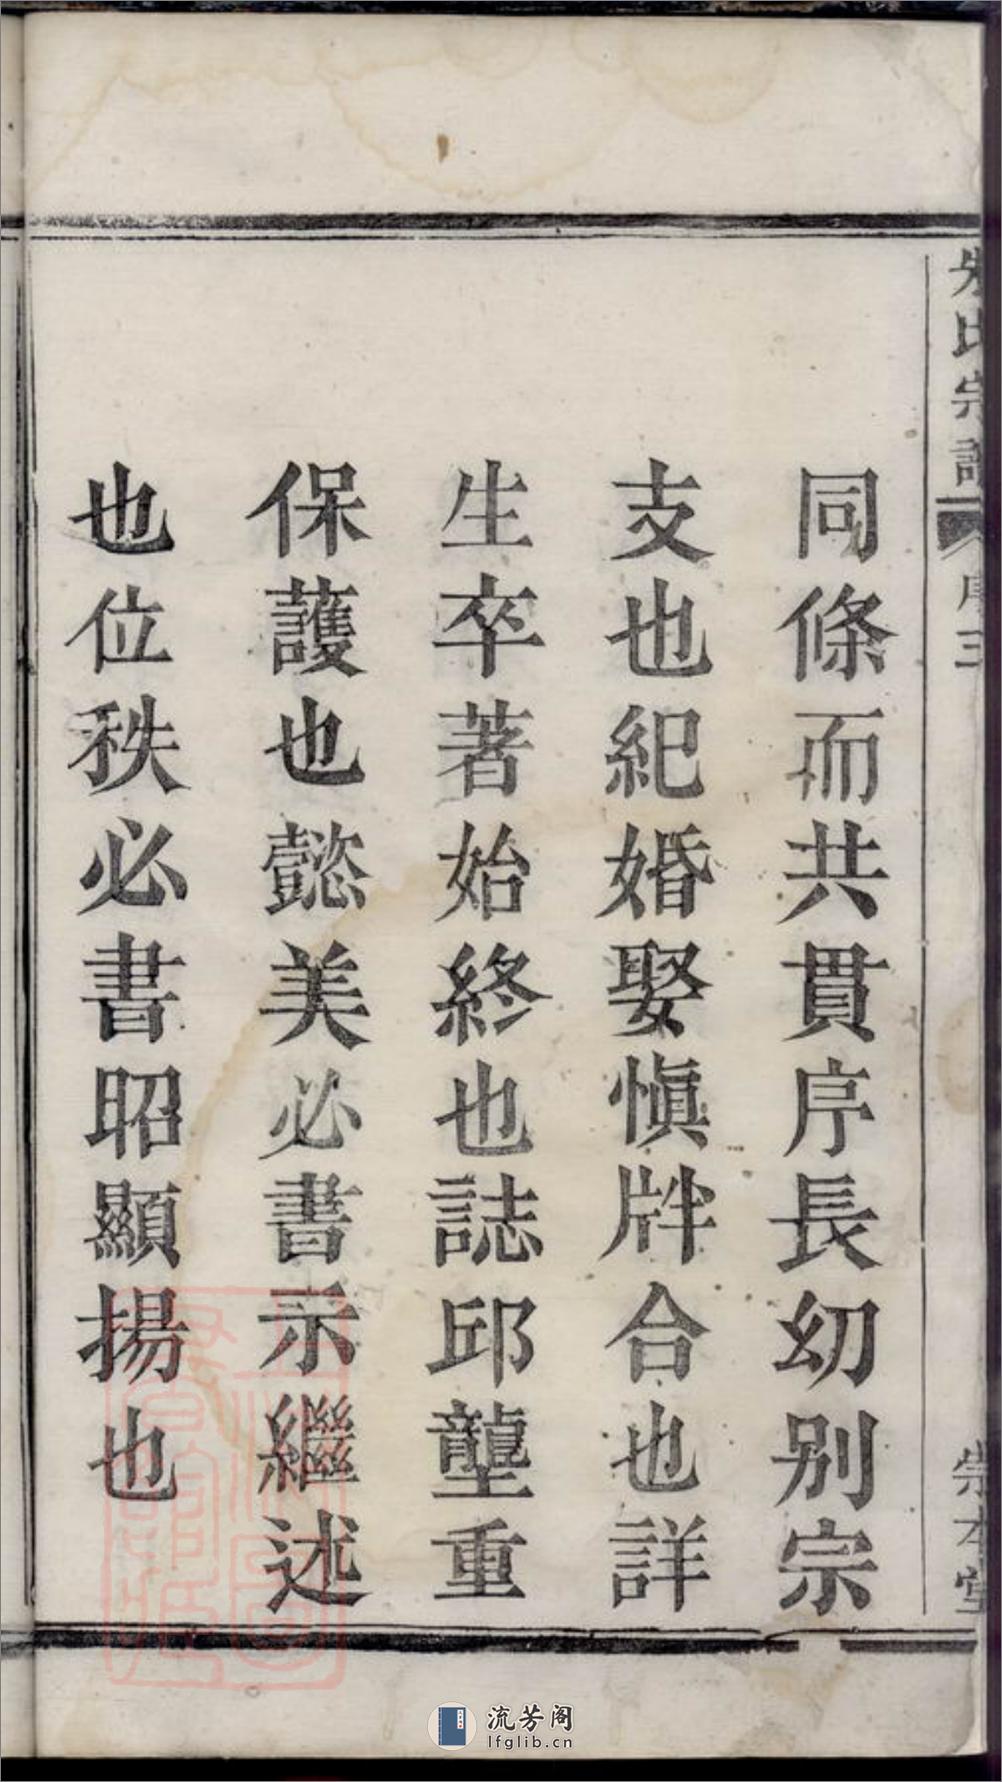 朱氏宗譜
序三
崇本堂
同條而共貫序長幼别宗
支也紀婚娶慎牉合也詳
生卒著始終也誌邱壟重
保護也懿美必書示繼述
也位秩必書昭顯揚也
流芳阁
lfglib.cn